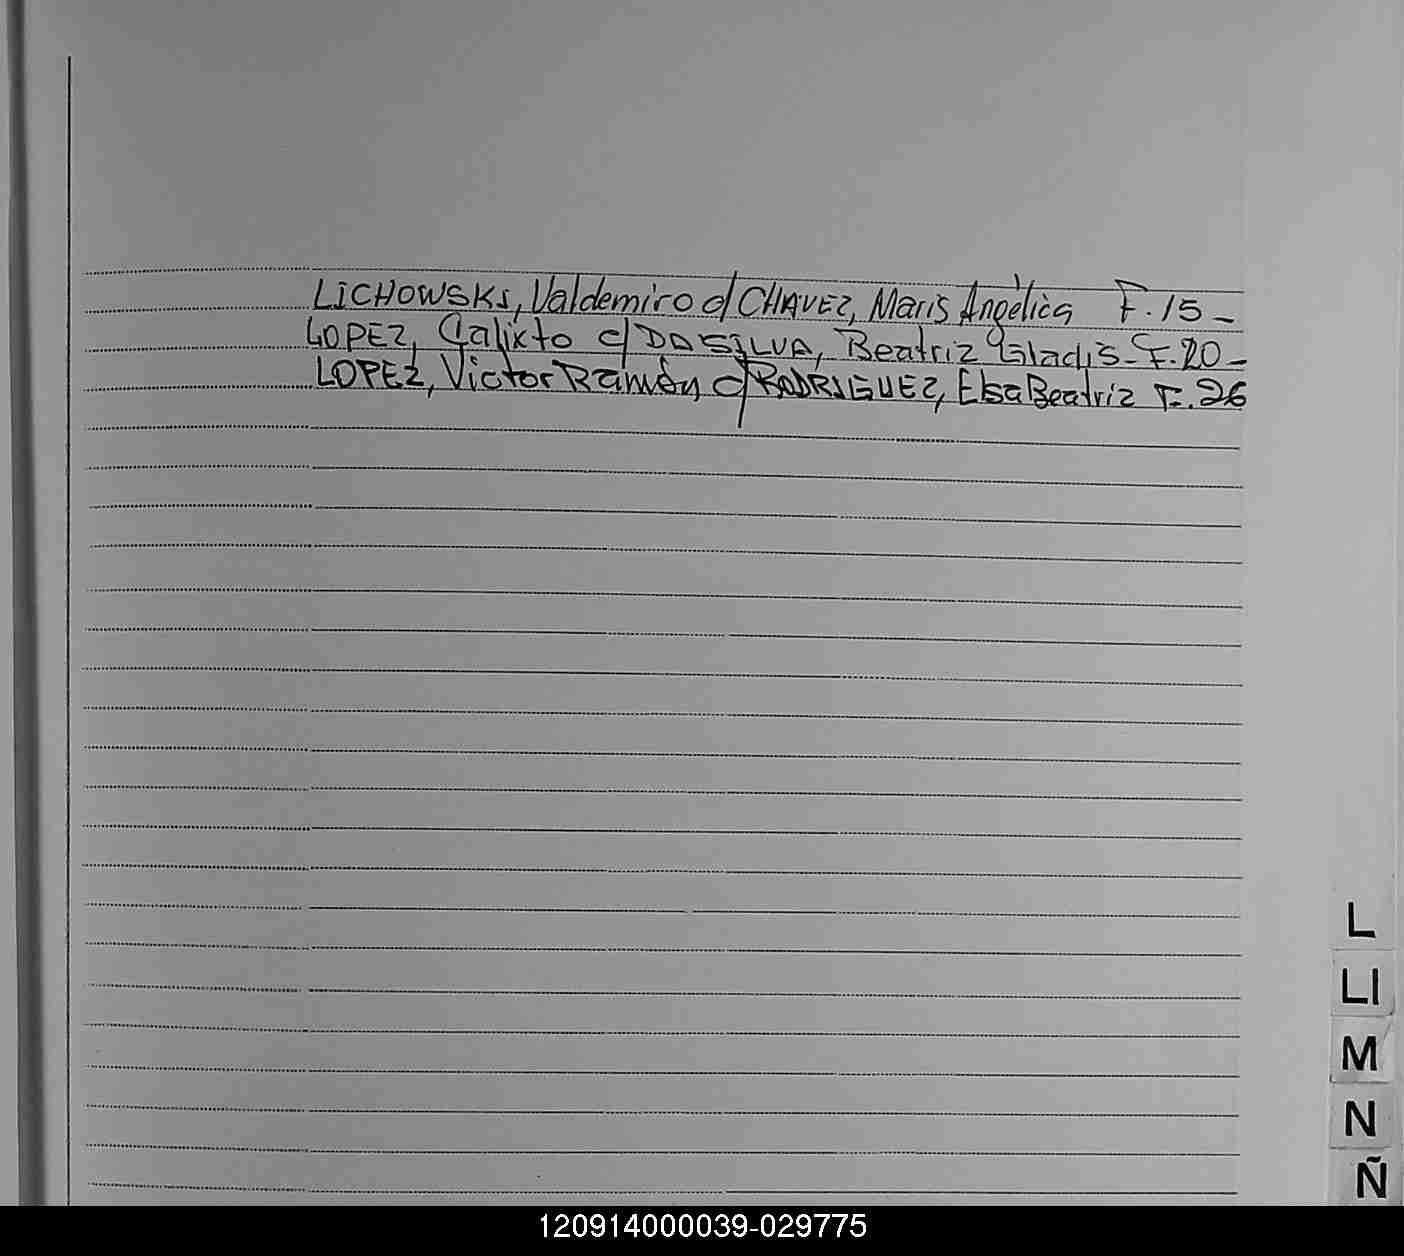 LICHOWSKI, Valdemiro c/ CHAVEZ, Maris Angélica F. 15 -
LOPEZ, Calixto c/ DA SILVA, Beatriz Gladis - F. 20 -
LOPEZ, Victor Ramón c/ RODRIGUEZ, Elsa Beatriz F. 26
L
Ll
M
N
Ñ
120914000039-029775